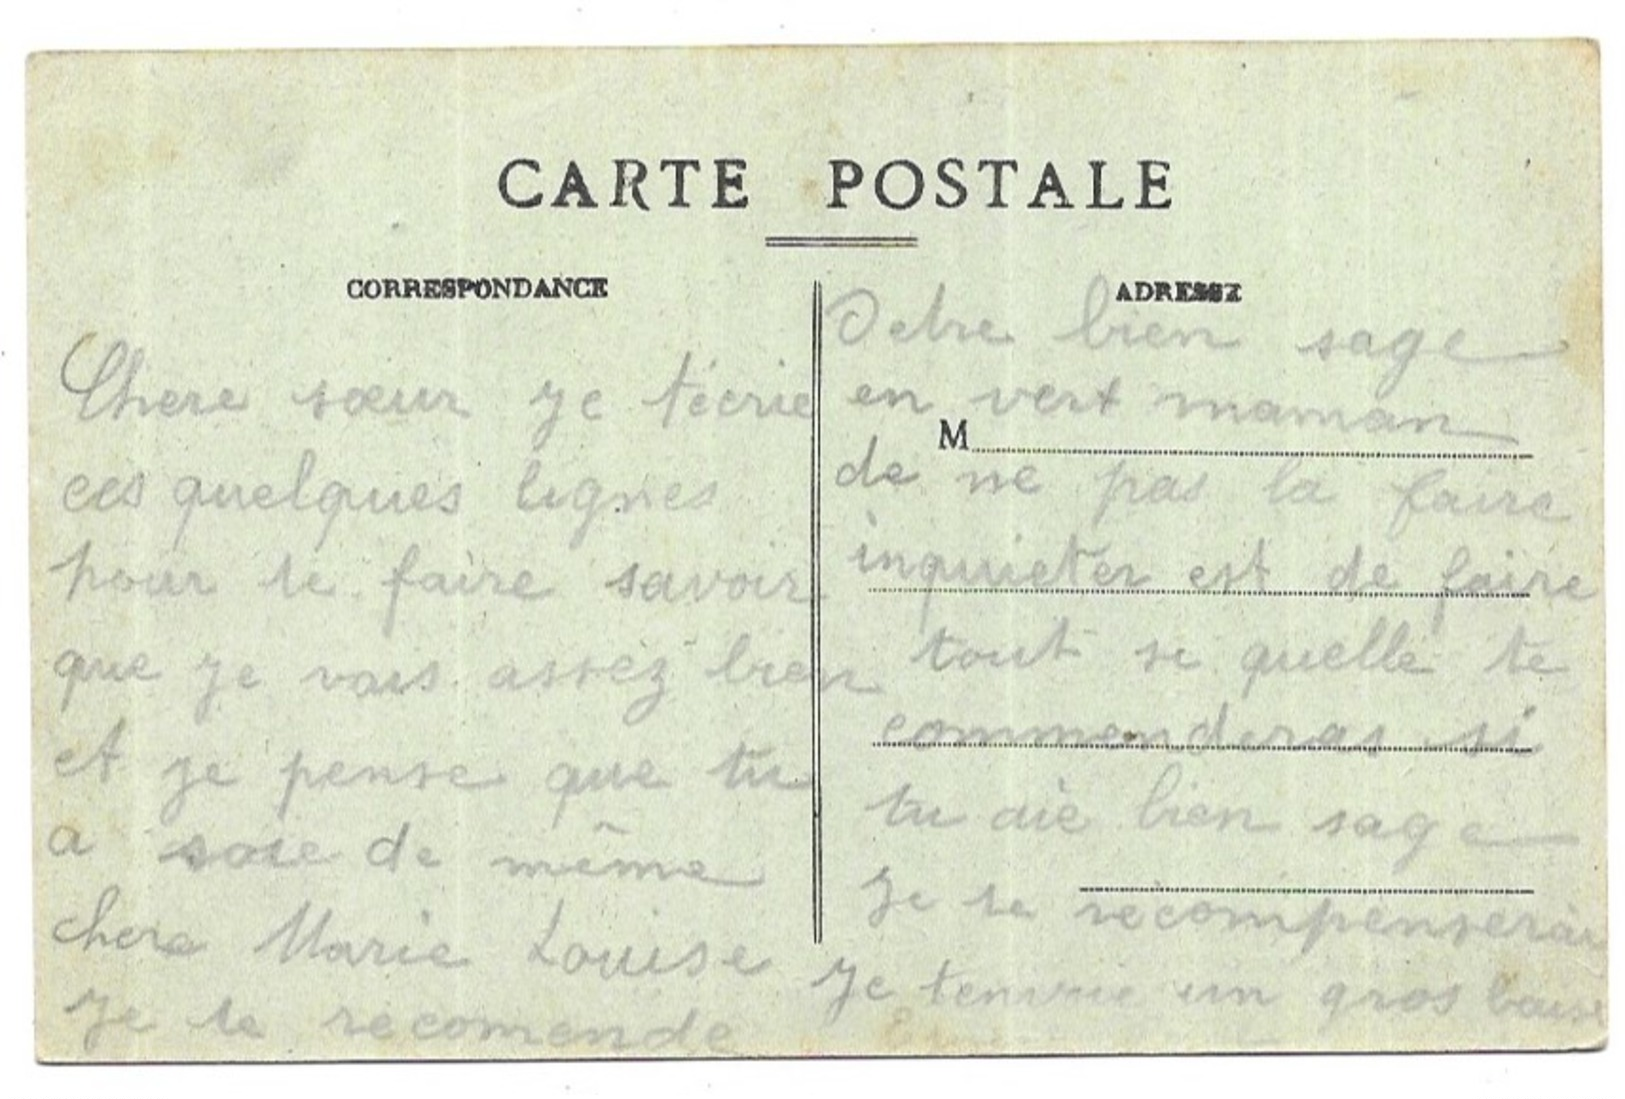 CARTE POSTALE
CORRESPONDANCE
Chere sœur je t'écrie
ces quelques lignes
pour te faire savoir
que je vais assez bien
et je pense que tu
a soie de même
chere Marie Louise
je te recomende
ADRESSE
D etre bien sage
en vert maman
M
de ne pas la faire
inquieter est de faire
tout se quelle te
commenderas si
tu aiè bien sage
je te recompenserai
je tenvoie un gros